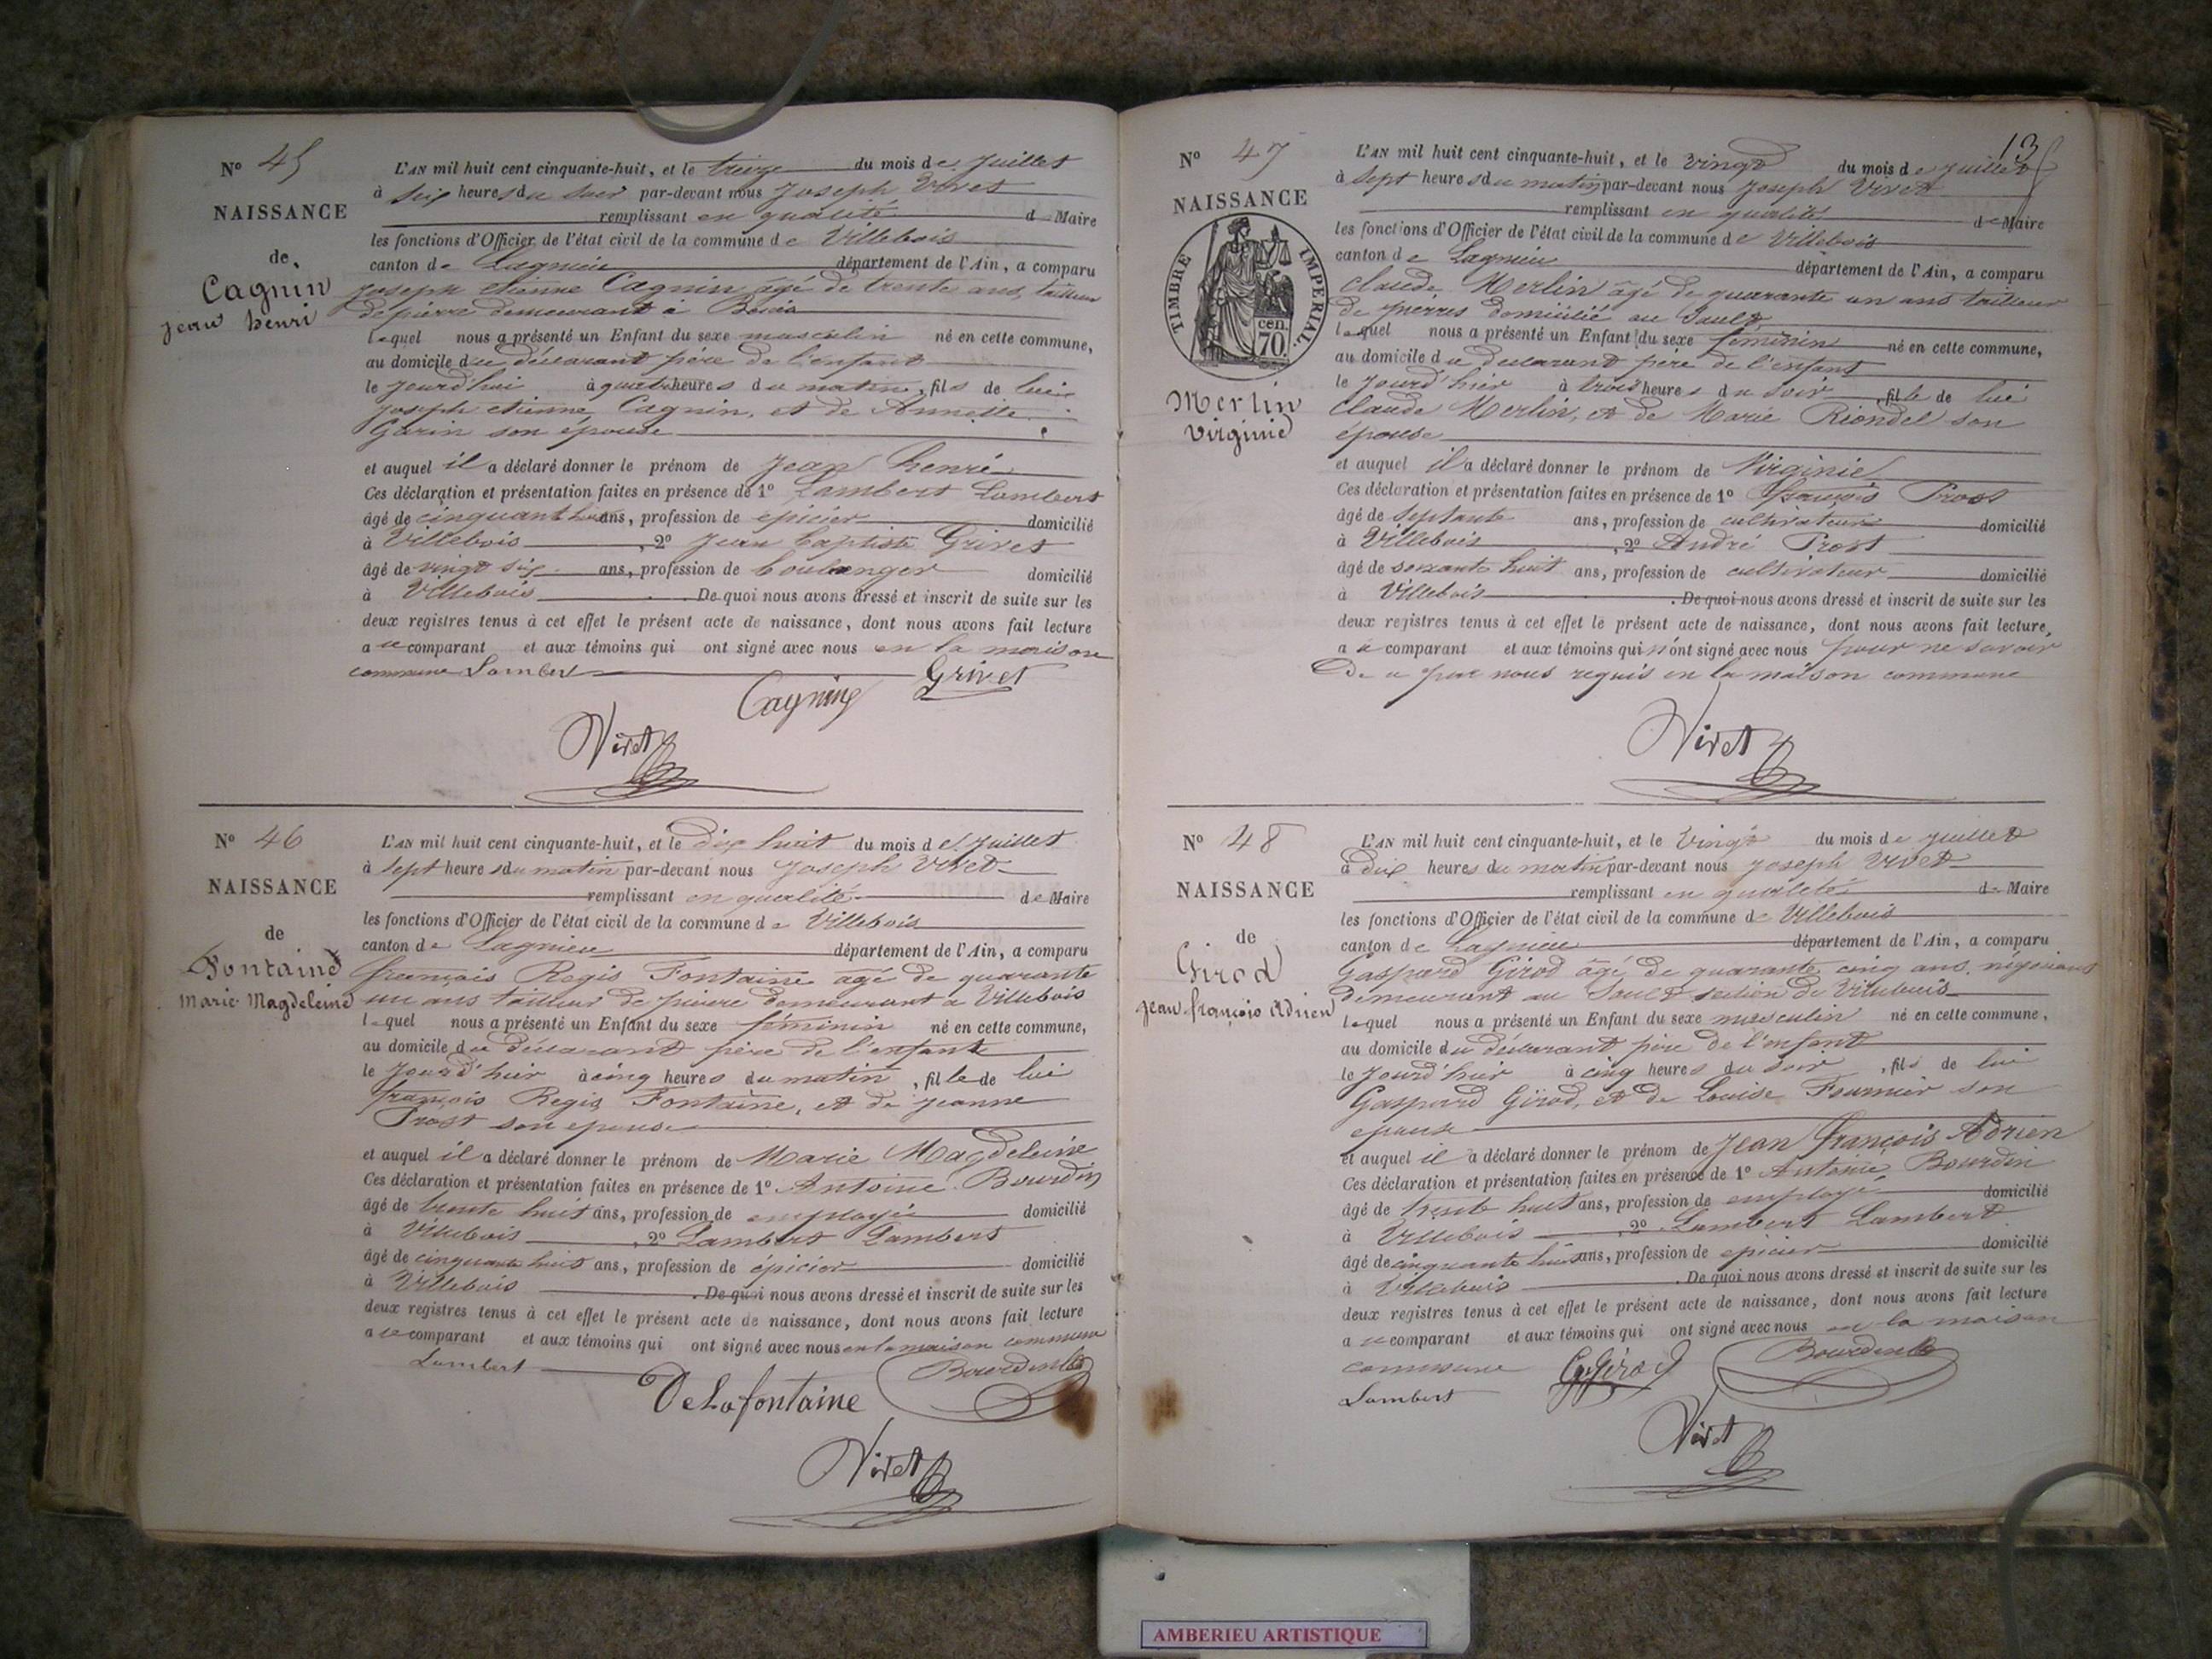 N° 45
NAISSANCE
de
Cagnin
jean henri
L'AN mil huit cent cinquante-huit, et le treize du mois de juillet
à six heures du soir par-devant nous Joseph Vivet
remplissant en qualité de Maire
les fonctions d'Officier de l'état civil de la commune de Villebois
canton de Lagnieu département de l'Ain, a comparu
Joseph etienne Cagnin âgé de trente ans, tailleur
de pierre demeurant à Bouis
lequel nous a présenté un Enfant du sexe masculin né en cette commune,
au domicile du déclarant père de l'enfant
le jourd'hui à quatre heures du matin, fils de lui
joseph etienne Cagnin, et de Annette
Garin son épouse
et auquel il a déclaré donner le prénom de Jean henri
Ces déclaration et présentation faites en présence de 1° Lambert Lambert
âgé de cinquant huit ans, profession de épicier domicilié
à Villebois, 2° Jean baptiste Grivet
âgé de vingt six ans, profession de boulanger domicilié
à Villebois. De quoi nous avons dressé et inscrit de suite sur les
deux registres tenus à cet effet le présent acte de naissance, dont nous avons fait lecture
au comparant et aux témoins qui ont signé avec nous en la maison
commune Lambert Grivet
Cagnin
Vivet
N° 46
NAISSANCE
de
Fontaine
Marie Magdeleine
L'AN mil huit cent cinquante-huit, et le dix huit du mois de Juillet
à sept heures du matin par-devant nous Joseph Vivet
remplissant en qualité de Maire
les fonctions d'Officier de l'état civil de la commune de Villebois
canton de Lagnieu département de l'Ain, a comparu
françois Regis Fontaine âgé de quarante
un ans tailleur de pierre demeurant a Villebois
lequel nous a présenté un Enfant du sexe féminin né en cette commune,
au domicile du déclarant père de l'enfant
le jourd'hier à cinq heures du matin, fille de lui
françois Regis Fontaine, et de jeanne
Prost son epouse
et auquel il a déclaré donner le prénom de Marie Magdeleine
Ces déclaration et présentation faites en présence de 1° Antoine Bourdin
âgé de trente huit ans, profession de employé domicilié
à Villebois, 2° Lambert Lambert
âgé de cinquante huit ans, profession de épicier domicilié
à Villebois. De quoi nous avons dressé et inscrit de suite sur les
deux registres tenus à cet effet le présent acte de naissance, dont nous avons fait lecture
au comparant et aux témoins qui ont signé avec nous en la maison commune
Lambert Bourdin
DeLafontaine
Vivet
13
N° 47
NAISSANCE
TIMBRE IMPERIAL.
70 cen.
Merlin
Virginie
L'AN mil huit cent cinquante-huit, et le vingt du mois de juillet
à sept heures du matin par-devant nous Joseph Vivet
remplissant en qualité de Maire
les fonctions d'Officier de l'état civil de la commune de Villebois
canton de Lagnieu département de l'Ain, a comparu
claude Merlin âgé de quarante un ans tailleur
de pierres domicilié au Sault
lequel nous a présenté un Enfant du sexe féminin né en cette commune,
au domicile du declarant père de l'enfant
le jourd'hier à trois heures du soir, fille de lui
claude Merlin, et de Marie Riondel son
épouse
et auquel il a déclaré donner le prénom de Virginie
Ces déclaration et présentation faites en présence de 1° françois Prost
âgé de septante ans, profession de cultivateur domicilié
à Villebois, 2° André Prost
âgé de soixante huit ans, profession de cultivateur domicilié
à Villebois. De quoi nous avons dressé et inscrit de suite sur les
deux registres tenus à cet effet le présent acte de naissance, dont nous avons fait lecture,
au comparant et aux témoins qui n'ont signé avec nous pour ne savoir
De ce par nous requis en la maison commune
Vivet
N° 48
NAISSANCE
de
Girod
jean françois Adrien
L'AN mil huit cent cinquante-huit, et le vingt du mois de juillet
à dix heures du matin par-devant nous Joseph Vivet
remplissant en qualité de Maire
les fonctions d'Officier de l'état civil de la commune de Villebois
canton de Lagnieu département de l'Ain, a comparu
Gaspard Girod âgé de quarante cinq ans négociant
demeurant au Sault section de Villebois
lequel nous a présenté un Enfant du sexe masculin né en cette commune,
au domicile du déclarant père de l'enfant
le jourd'hier à cinq heures du soir, fils de lui
Gaspard Girod, et de Louise Fournier son
epouse
et auquel il a déclaré donner le prénom de Jean françois Adrien
Ces déclaration et présentation faites en présence de 1° Antoine Bourdin
âgé de trente huit ans, profession de employé domicilié
à Villebois, 2° Lambert Lambert
âgé de cinquante huit ans, profession de epicier domicilié
à Villebois. De quoi nous avons dressé et inscrit de suite sur les
deux registres tenus à cet effet le présent acte de naissance, dont nous avons fait lecture
au comparant et aux témoins qui ont signé avec nous en la maison
commune Girod Bourdin
Lambert
Vivet
AMBERIEU ARTISTIQUE